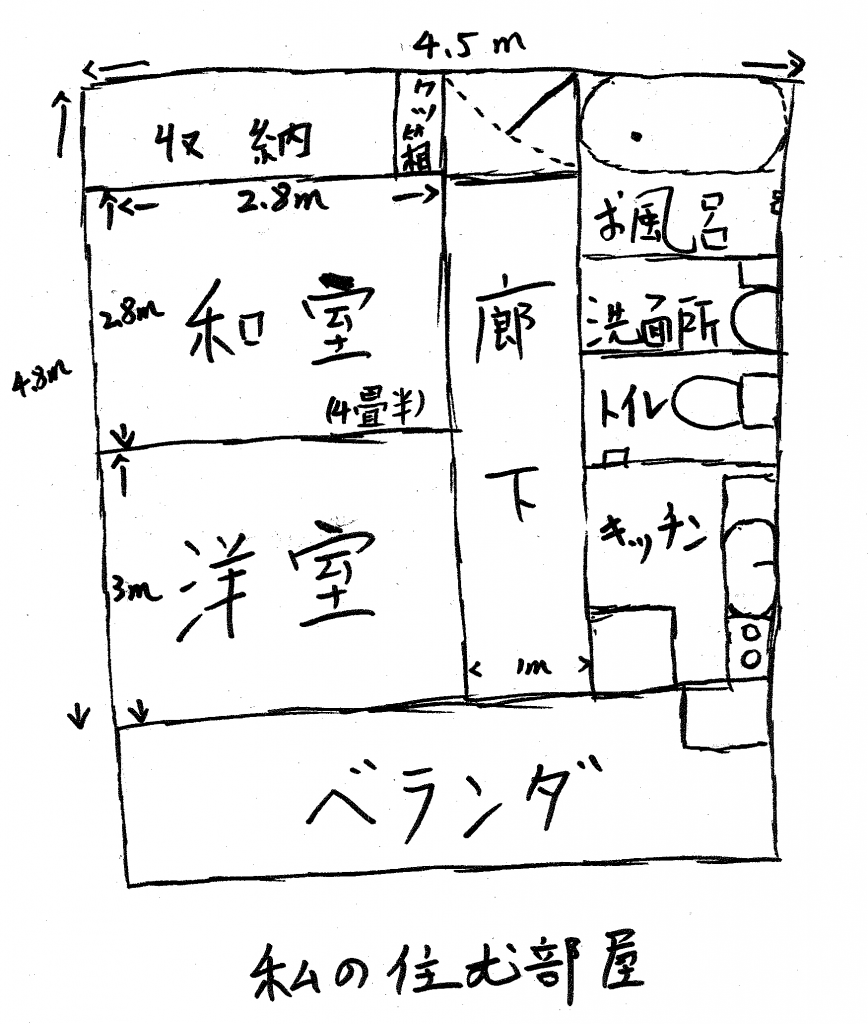 4.5 m
収納
クツ箱
2.8m
お風呂
2.8m
和室
廊下
洗面所
4.8m
(4畳半)
トイレ
キッチン
洋室
3m
1m
ベランダ
私の住む部屋